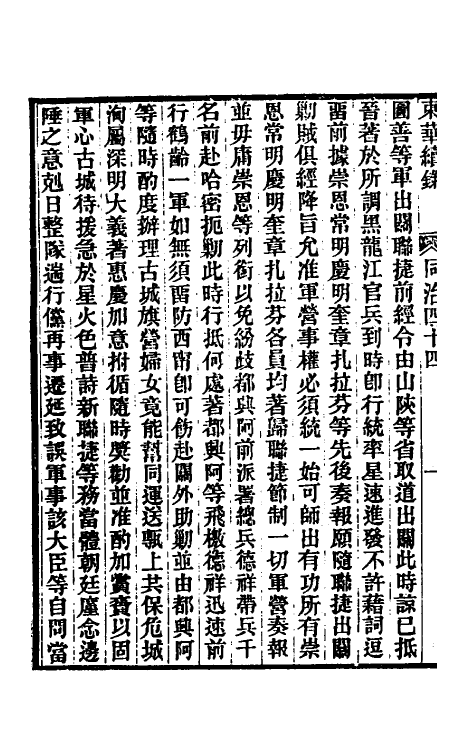 東華續錄　同治四十四　一
圖善等軍出關聯捷前經令由山陝等省取道出關此時諒已抵
晉著於所調黑龍江官兵到時卽行統率星速進發不許藉詞逗
留前據崇恩常明慶明奎章扎拉芬等先後奏報願隨聯捷出關
剿賊俱經降旨允准軍營事權必須統一始可師出有功所有崇
恩常明慶明奎章扎拉芬各員均著歸聯捷節制一切軍營奏報
並毋庸崇恩等列銜以免紛歧都興阿前派署總兵德祥帶兵千
名前赴哈密扼剿此時行抵何處著都興阿等飛檄德祥迅速前
行鶴齡一軍如無須留防西甯卽可飭赴關外助剿並由都興阿
等隨時酌度辦理古城旗營婦女竟能幫同運送甎上共保危城
洵屬深明大義著惠慶加意拊循隨時獎勸並准酌加賞賚以固
軍心古城待援急於星火色普詩新聯捷等務當體朝廷廑念邊
陲之意剋日整隊遄行儻再事遷延致誤軍事該大臣等自問當